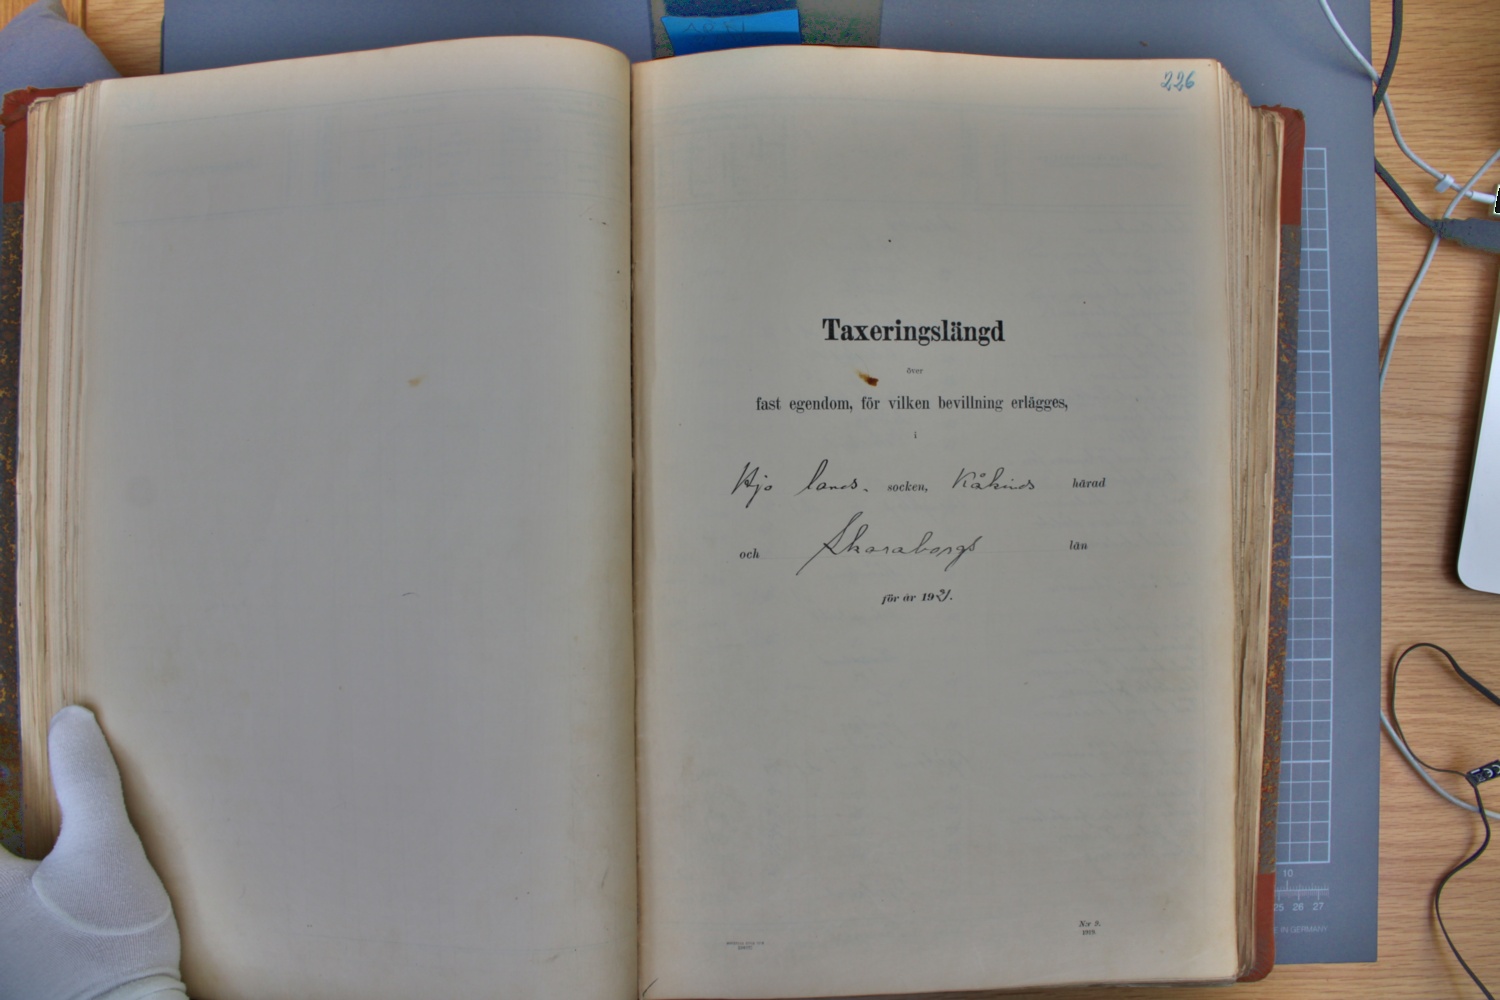 226
Taxeringslängd
över
fast egendom, för vilken bevillning erlägges,
i
Hjo lands. socken, Kåkinds härad
och Skaraborgs län
för år 1921.
N:r 9.
1919.
10
25 26 27
E IN GERMANY